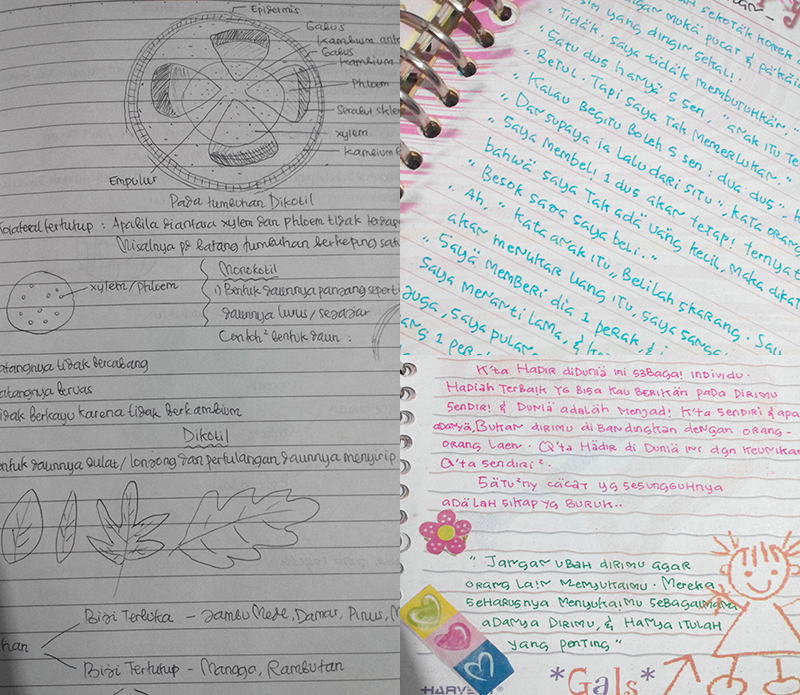 Epidermis
Gabus
Kambium
Gabus
Kambium
Phloem
Serabut skle
xylem
Kambium
Empulur
Pada tumbuhan Dikotil
Kolateral tertutup : Apabila diantara xylem dan phloem tidak terdap
Misalnya pd batang tumbuhan berkeping satu
xylem/phloem
Monokotil
1) Bentuk daunnya panjang seperti
daunnya lurus/sejajar
Contoh² bentuk daun :
atangnya tidak bercabang
atangnya beruas
idak berkayu karena tidak berkambium
Dikotil
entuk daunnya bulat/lonjong dan pertulangan daunnya menyirip
Biji Terbuka - Jambu Mede, Damar, Pinus, M
han
Biji Tertutup - Mangga, Rambutan
sekotak korek
dengan muka pucat & pakaia
yang dingin sekali.
"Tidak, saya tidak membutuhkan."
"Satu dus hanya 5 sen, " anak itu te
"Betul. Tapi saya tak memerlukan."
"Kalau begitu boleh 5 sen : dua dus".
Dan supaya ia lalu dari situ", kata orang
"Saya membeli 1 dus akan tetapi ternyat
bahwa saya tak ada uang kecil, maka dikat
"Besok saja saya beli.."
"Ah, " kata anak itu, Belilah skarang. Sau
akan menukar uang itu, saya sanga
"Saya memberi dia 1 perak, &
saya menanti lama, &
juga, saya pulan
ang 1 per
K'ta HADIR diDUNIA ini SBAGAI INDIVIDU.
HADIAH TERBAIK YG BISA KAU BERIKAN PADA DIRIMU
SENDIRI & DUNIA ADALAH MENJADI K'TA SENDIRI & APA
ADANYA, BUKAN DIRIMU DI BANDINGKAN DENGAN ORANG-
ORANG LAEN. Q'TA HADIR DI DUNIA INI DGN KEUNIKAN
Q'TA SENDIRI².
SATU²NY CACAT YG SESUNGGUHNYA
ADALAH SIKAP YG BURUK..
"JANGAN UBAH DIRIMU AGAR
ORANG LAIN MENYUKAIMU. MEREKA
SEHARUSNYA MENYUKAIMU SEBAGAIMANA
ADANYA DIRIMU, & HANYA ITULAH
YANG PENTING"
*Gals*
HARVEST